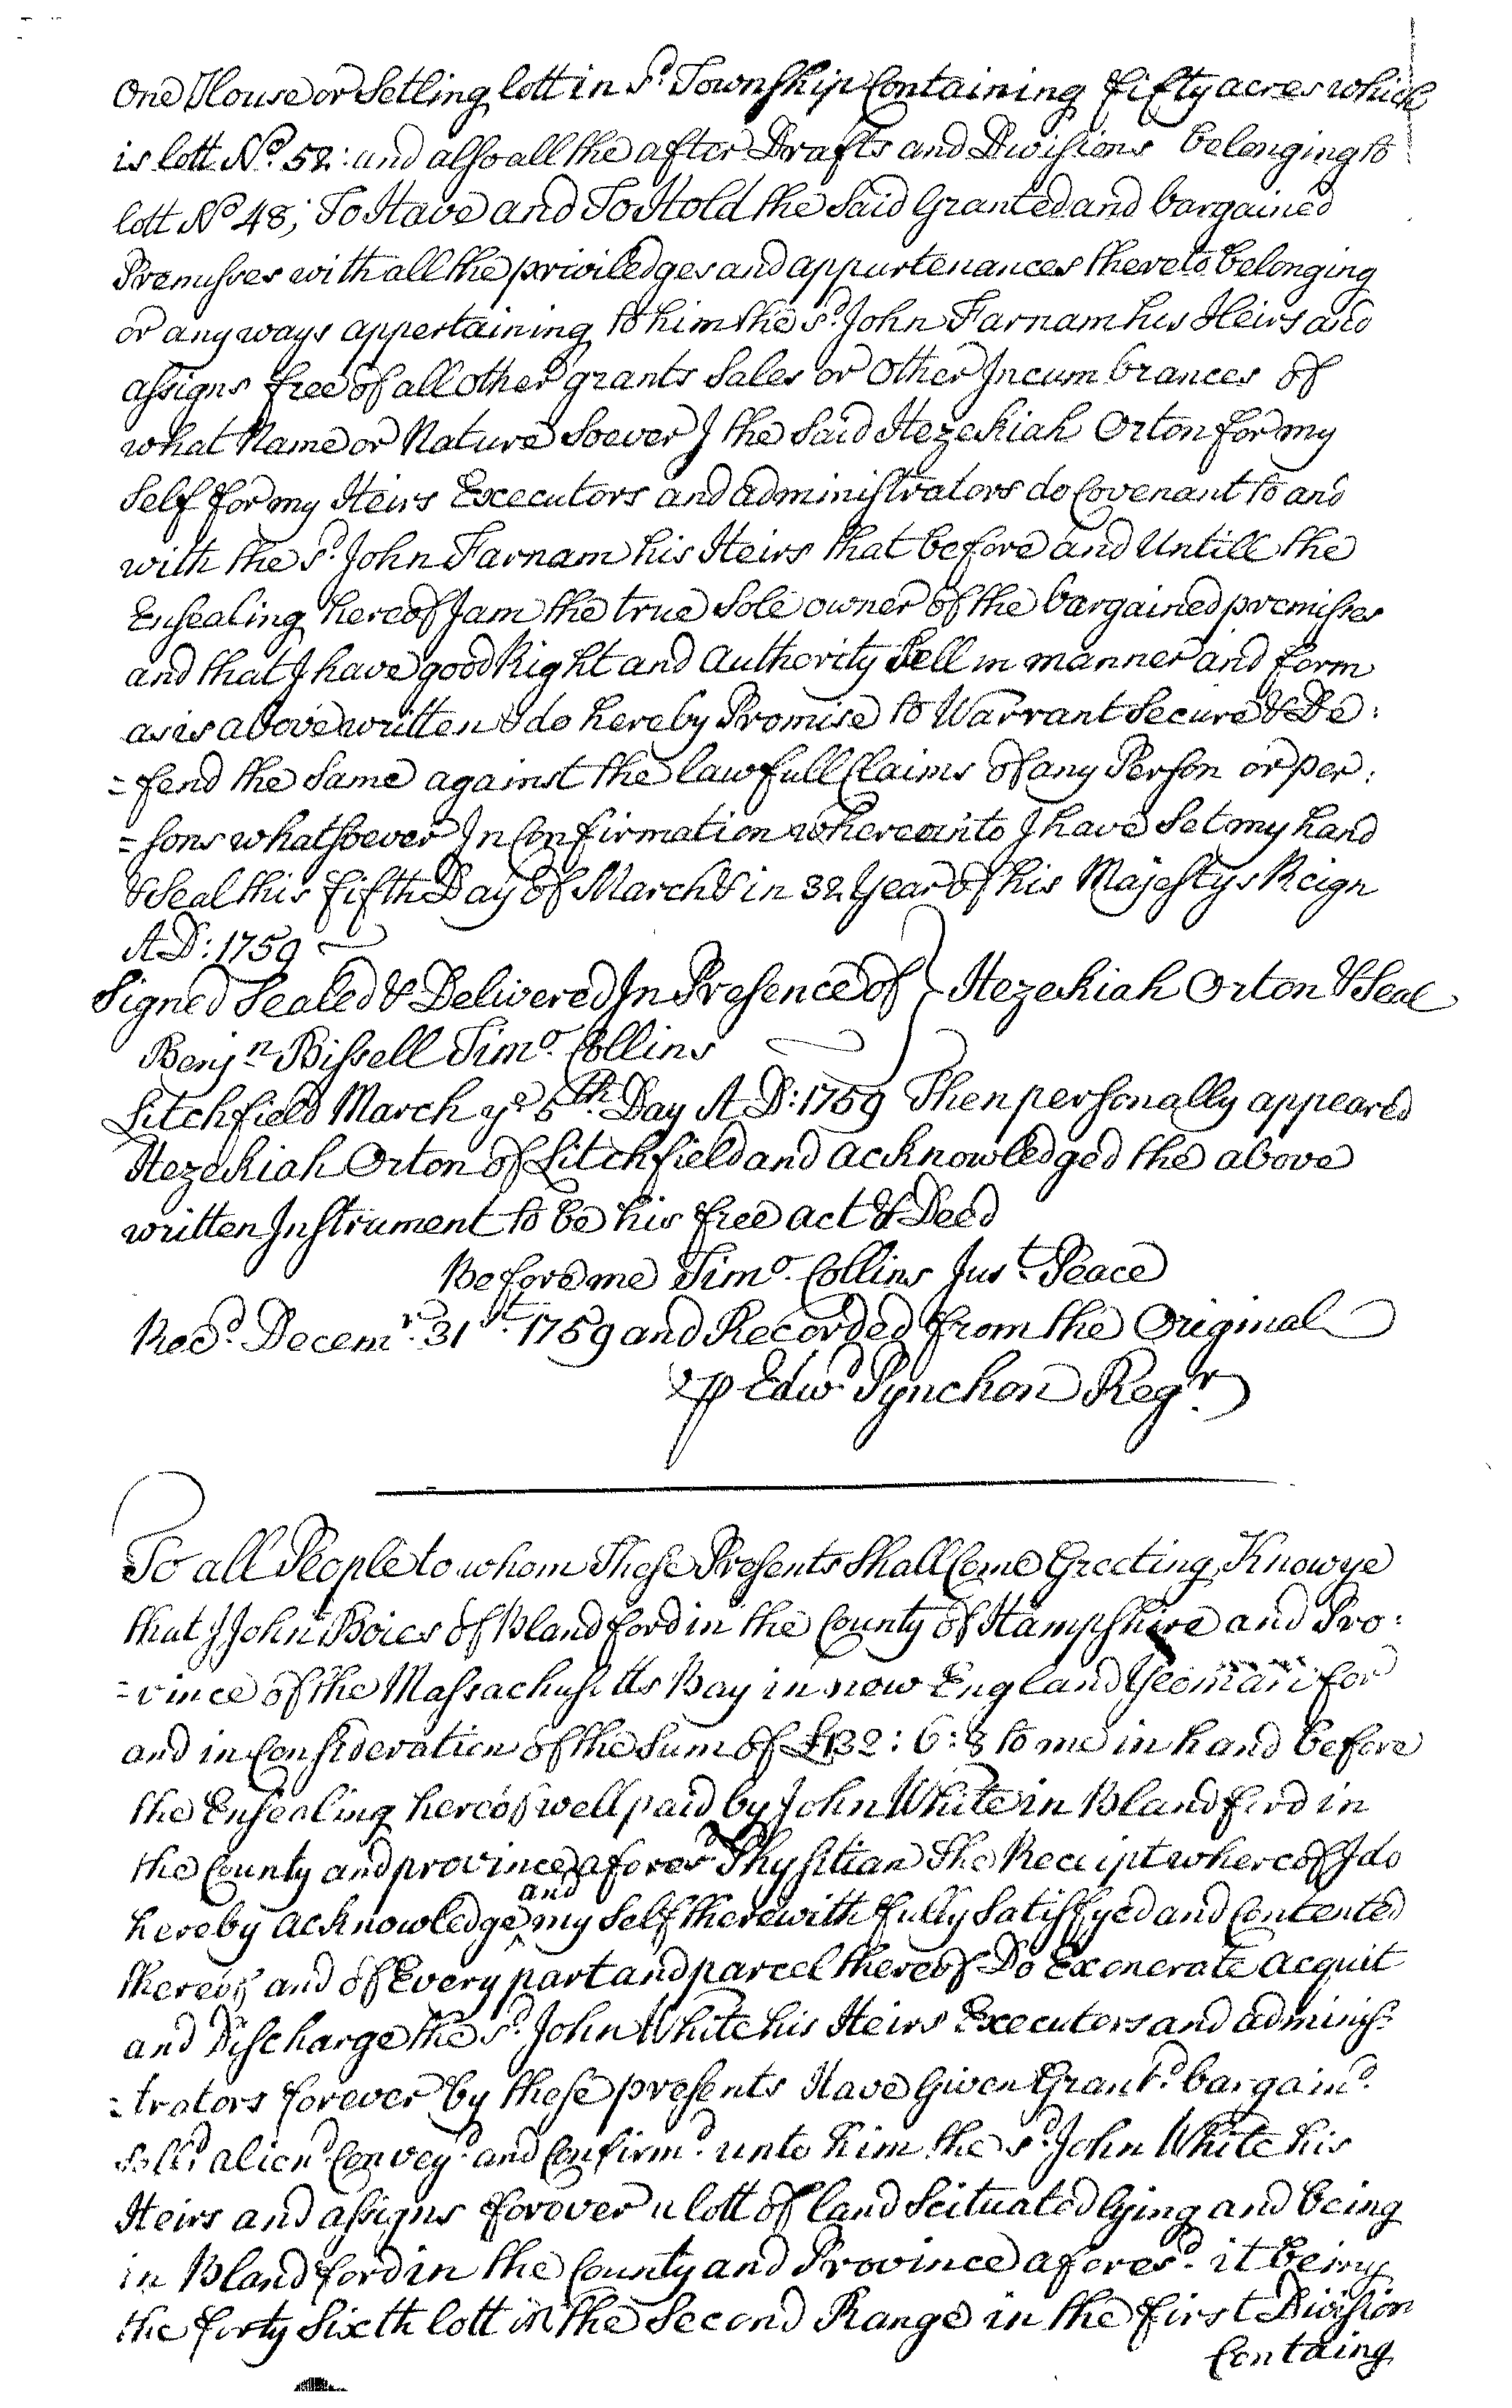 One House or Setling lott in sd. Township Containing fifty acres which
is lott No. 52: and also all the after Drafts and Divisions belonging to
lott No 48; To Have and To Hold the Said Granted and bargained
Premisses with all the priviledges and appurtenances thereto belonging
or any ways appertaining to him the sd. John Farnam his Heirs and
assigns free of all other grants Sales or Other Incumbrances of
what Name or Nature Soever I the Said Hezekiah Orton for my
Self for my Heirs Executors and administrators do Covenant to and
with the sd. John Farnam his Heirs that before and Untill the
Ensealing hereof I am the true Sole owner of the bargained premisses
and that I have good Right and Authority Sell in manner and form
as is above written & do hereby Promise to Warrant Secure & De:
=fend the Same against the lawfull Claims of any Person or per:
=sons whatsoever In Confirmation whereunto I have Set my hand
& Seal this fifth Day of March & in 32 Year of his Majestys Reign
A D: 1759
Signed Sealed & Delivered In Presence of } Hezekiah Orton & Seal
Benjn Bissell Timo. Collins
Litchfield March ye 5th. Day A D: 1759 Then personally appeared
Hezekiah Orton of Litchfield and acknowledged the above
written Instrument to be his free act & Deed
Before me Timo. Collins Just. Peace
Recd. Decemr. 31st. 1759 and Recorded from the Original
p Edwd Pynchon Regr.
To all People to whom These Presents Shall Come Greeting Know ye
that I John Boies of Blandford in the County of Hampshire and Pro:
=vince of the Massachusetts Bay in new England Yeoman for
and in Consideration of the Sum of £132: 6: 8 to me in hand before
the Ensealing hereof well paid by John White in Blandford in
the County and province aforesd Physitian The Receipt whereof I do
hereby acknowledge and my Self therewith fully Satisfyed and Contented
thereof and of Every part and parcel thereof Do Exonerate acquit
and Discharge the sd. John White his Heirs Executors and adminis:
=trators forever by these presents Have Given Grantd. bargaind.
Solld. aliend. Conveyd. and Confirmd. unto him the sd. John White his
Heirs and assigns forever a lott of land Scituated lying and being
in Blandford in the County and Province aforesd. it being
the forty Sixth lott in the Second Range in the first Division
Containg